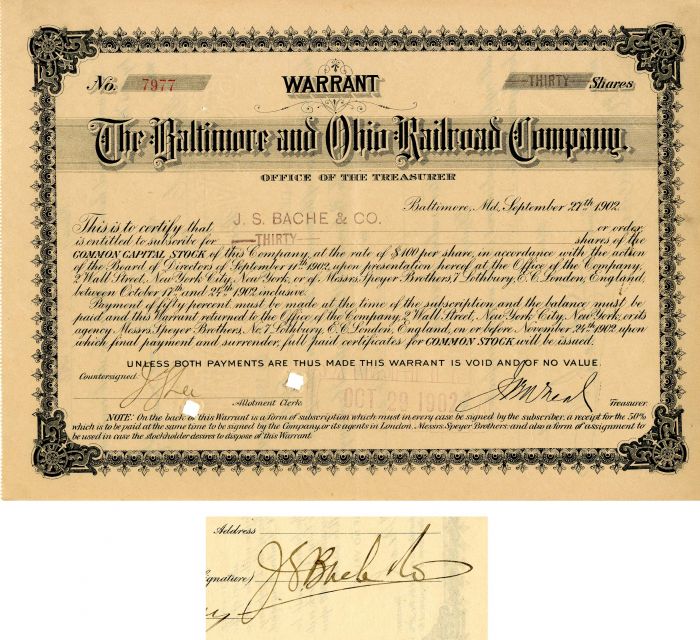 No. 7977 WARRANT THIRTY Shares
The Baltimore and Ohio Railroad Company.
OFFICE OF THE TREASURER
Baltimore, Md., September 27th 1902.
This is to certify that J. S. BACHE & CO. or order,
is entitled to subscribe for THIRTY shares of the
COMMON CAPITAL STOCK of this Company, at the rate of $100 per share, in accordance with the action
of the Board of Directors of September 11th 1902, upon presentation hereof at the Office of the Company,
2 Wall Street, New York City, New York, or of Messrs. Speyer Brothers, 7 Lothbury, E.C. London, England,
between October 17th and 27th 1902 inclusive.
Payment of fifty percent. must be made at the time of the subscription and the balance must be
paid and this Warrant returned to the Office of the Company, 2 Wall Street, New York City, New York, or its
agency Messrs. Speyer Brothers, No. 7 Lothbury, E.C. London, England, on or before November 24th 1902, upon
which final payment and surrender, full paid certificates for COMMON STOCK will be issued.
UNLESS BOTH PAYMENTS ARE THUS MADE THIS WARRANT IS VOID AND OF NO VALUE.
Countersigned.
Allotment Clerk. OCT 1902 Treasurer.
NOTE: On the back of this Warrant is a form of subscription which must in every case be signed by the subscriber, a receipt for the 50%
which is to be paid at the same time to be signed by the Company, or its agents in London. Messrs. Speyer Brothers: and also a form of assignment to
be used in case the stockholder desires to dispose of this Warrant.
Address
Signature) J S Bache & Co